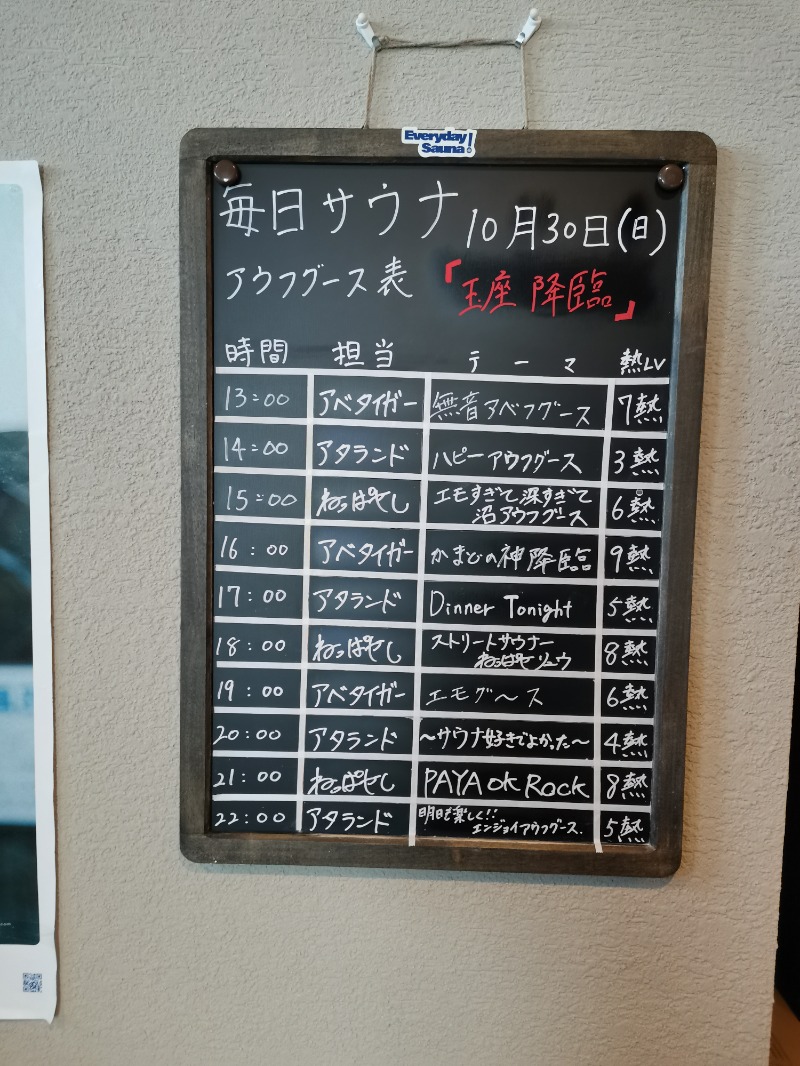 Everyday
Sauna!
毎日サウナ 10月30日(日)
アウフグース表 「玉座 降臨」
時間 担当 テーマ 熱LV
13:00 アベタイガー 無音アベフグース 7熱
14:00 アタランド ハピーアウフグース 3熱
15:00 ねっぱせし エモすぎて深すぎて
沼アウフグース 6熱
16:00 アベタイガー かまどの神降臨 9熱
17:00 アタランド Dinner Tonight 5熱
18:00 ねっぱせし ストリートサウナー
ねっぱせリュウ 8熱
19:00 アベタイガー エモグ〜ス 6熱
20:00 アタランド 〜サウナ好きでよかった〜 4熱
21:00 ねっぱせし PAYA OK ROCK 8熱
22:00 アタランド 明日も楽しく!!
エンジョイアウフグース. 5熱